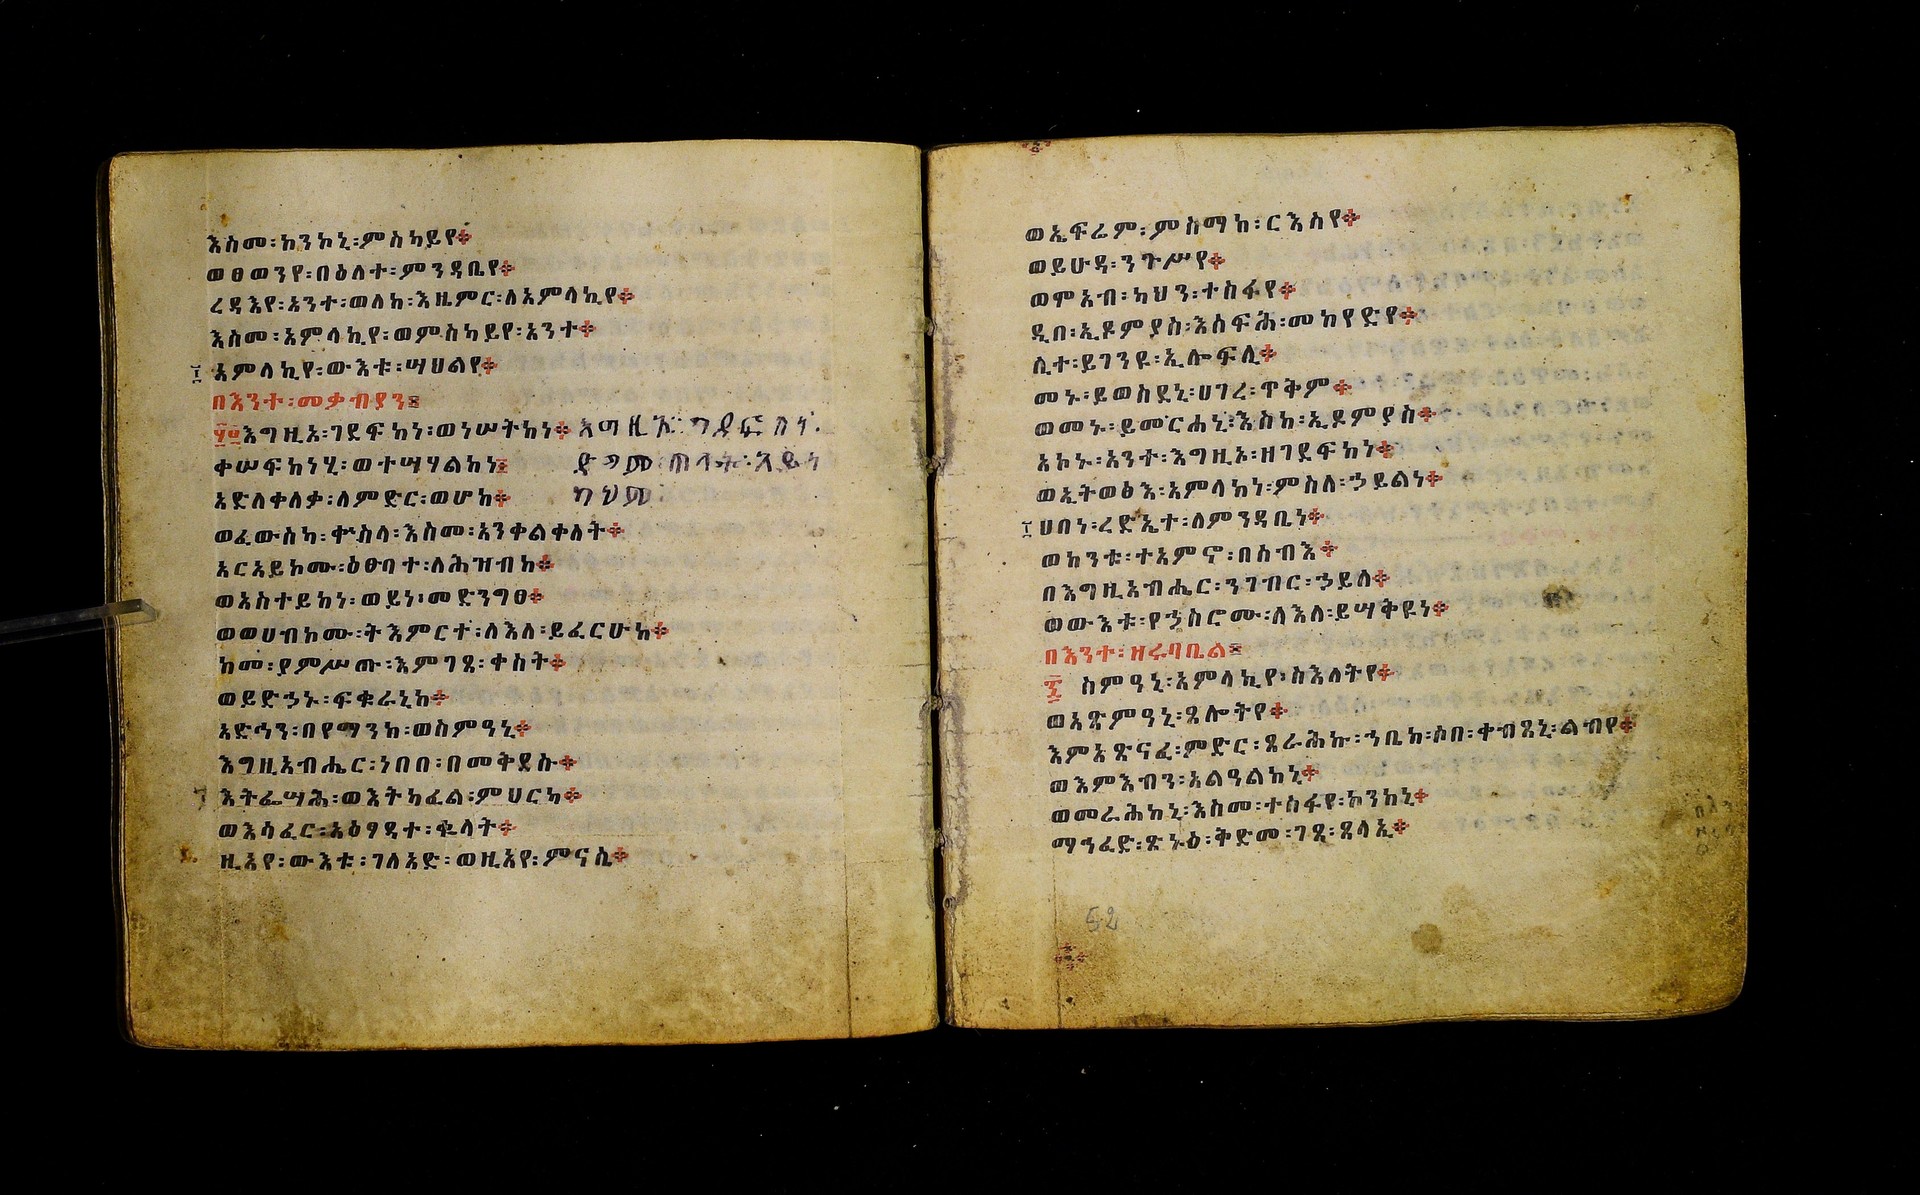 እስመ፡ኮንከኒ፡ምስካይየ፨
ወፀወንየ፡በዕለተ፡ምንዳቤየ፨
ረዳእየ፡አንተ፡ወለከ፡እዜምር፡ለአምላኪየ፨
እስመ፡አምላኪየ፡ወምስካይየ፡አንተ፨
፲ አምላኪየ፡ውእቱ፡ሣህልየ፨
በእንተ፡መቃብያን፤
፶፱እግዚአ፡ገደፍከነ፡ወነሠትከነ፨
ቀሠፍከነሂ፡ወተሣሃልከነ፨
አድለቀለቃ፡ለምድር፡ወሆከ፨
ወፈውስካ፡ቍስላ፡እስመ፡አንቀልቀለት፨
አርአይኮሙ፡ዕፀባተ፡ለሕዝብከ፨
ወአስተይከነ፡ወይነ፡መድንግፀ፨
ወወሀብኮሙ፡ትእምርተ፡ለእለ፡ይፈርሁከ፨
ከመ፡ያምሥጡ፡እምገጸ፡ቀስት፨
ወይድኃኑ፡ፍቁራኒከ፨
አድኅን፡በየማንከ፡ወስምዓኒ፨
እግዚአብሔር፡ነበበ፡በመቅደሱ፨
እትፌሣሕ፡ወእትካፈል፡ምህርካ፨
ወእሳፈር፡አዕፃዳተ፡ቈላት፨
ዚአየ፡ውእቱ፡ገለአድ፡ወዚአየ፡ምናሴ፨
ወኤፍሬም፡ምስማከ፡ርእስየ፨
ወይሁዳ፡ንጉሥየ፨
ወሞአብ፡ካህን፡ተስፋየ፨
ዲበ፡ኢዶምያስ፡እሰፍሕ፡መከየድየ፨
ሊተ፡ይገንዩ፡ኢሎፍሊ፨
መኑ፡ይወስደኒ፡ሀገረ፡ጥቅም፨
ወመኑ፡ይመርሐኒ፡እስከ፡ኢዶምያስ፨
አኮኑ፡አንተ፡እግዚኦ፡ዘገደፍከነ፨
ወኢትወፅእ፡አምላክነ፡ምስለ፡ኃይልነ፨
፲ ሀበነ፡ረድኤተ፡ለምንዳቤነ፨
ወከንቱ፡ተአምኖ፡በሰብእ፨
በእግዚአብሔር፡ንገብር፡ኃይለ፨
ወውእቱ፡የኃስሮሙ፡ለእለ፡ይሣቅዩነ፨
በእንተ፡ዘሩባቤል፤
፷ ስምዓኒ፡አምላኪየ፡ስእለትየ፨
ወአጽምዓኒ፡ጸሎትየ፨
እምአጽናፈ፡ምድር፡ጸራሕኩ፡ኀቤከ፡ሶበ፡ቀብጸኒ፡ልብየ፨
ወእምእብን፡አልዓልከኒ፨
ወመራሕከኒ፡እስመ፡ተስፋየ፡ኮንከኒ፨
ማኅፈድ፡ጽኑዕ፡ቅድመ፡ገጸ፡ጸላኢ፨
52